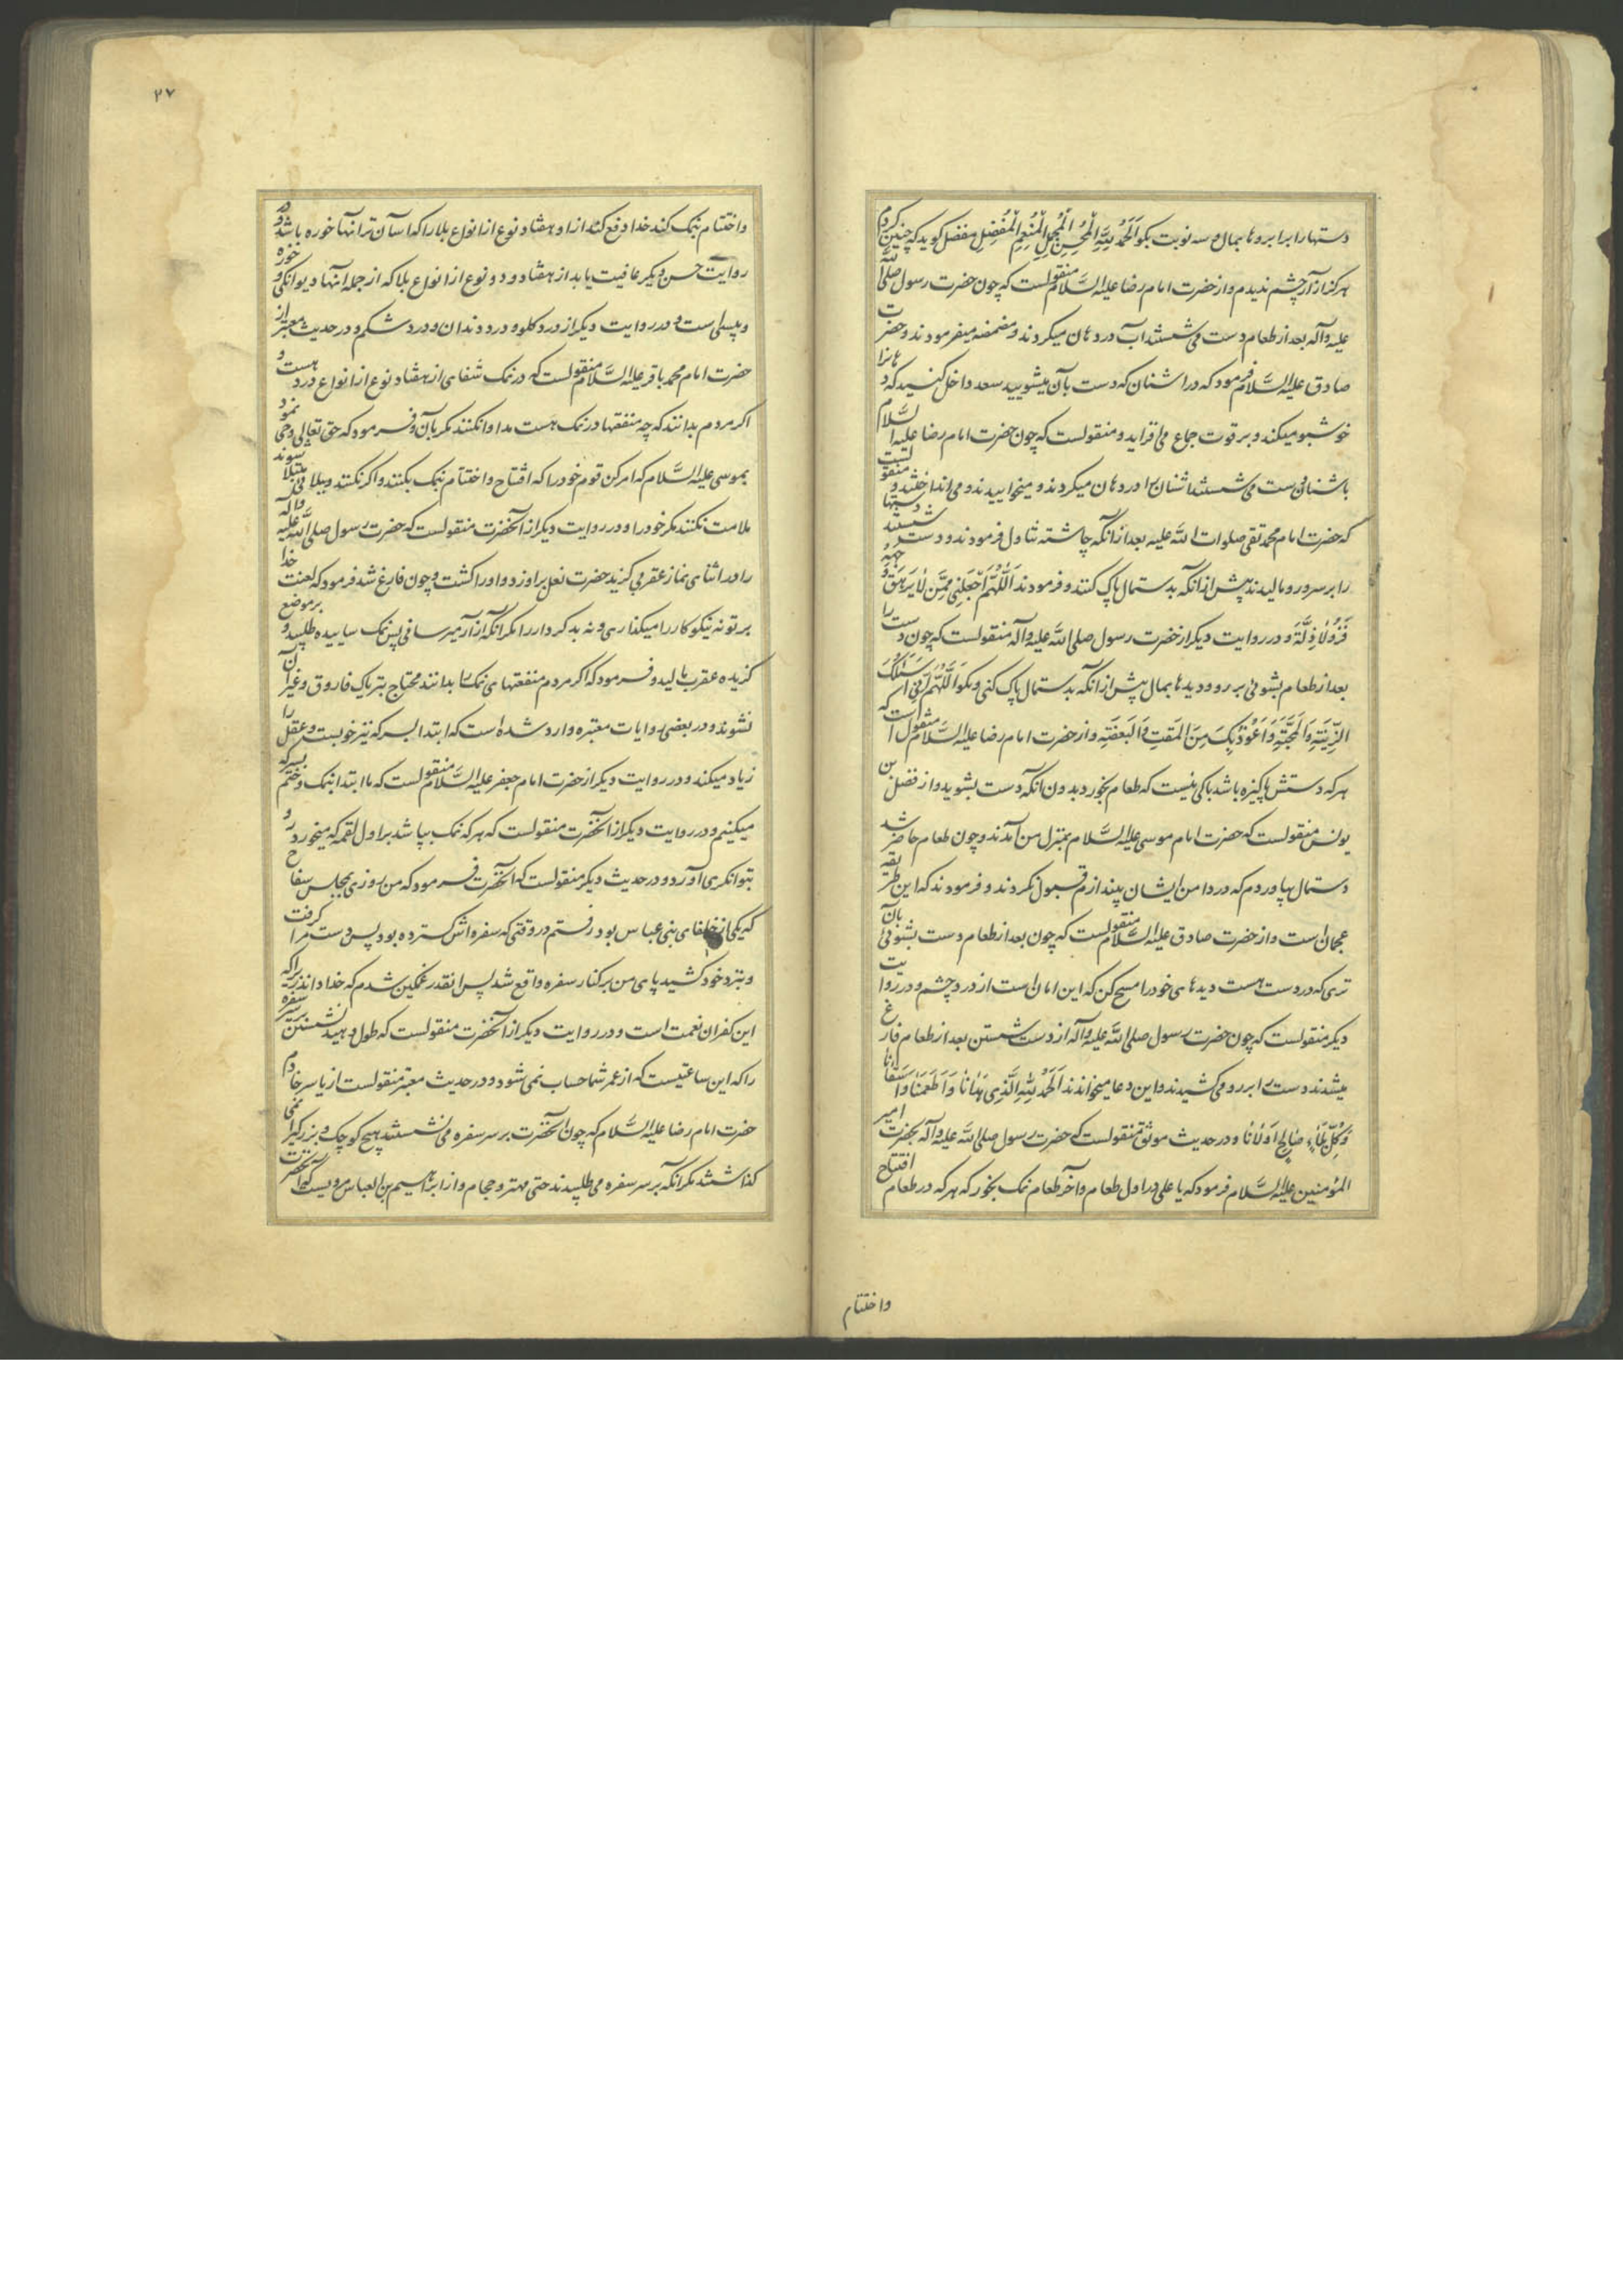 دستها را بر ابروها بمال و سه نوبت بکو اَلْحَمْدُ لِلّهِ الْمُحْسِنِ الْمُجْمِلِ الْمُنْعِمِ الْمُفْضِلِ مفضل کوید که چنین کردم
هرکز ازار چشم ندیدم و از حضرت امام رضا علیه السَّلام منقولست که چون حضرت رسول صلی الله
علیه وآله بعد از طعام دست می شستند آب در دهان میکردند و مضمضه میفرمودند و حضرت
صادق علیه السَّلام فرمود که در اشنان که دست بآن میشویید سعد داخل کنید که دهانرا
خوشبو میکند و بر قوت جماع می افزاید و منقولست که چون حضرت امام رضا علیه السَّلام
باشنان دست می شستند اشنان را در دهان میکردند و میخواییدند و می انداختند و منقولست
که حضرت امام محمد تقی صلوات الله علیه بعد از آنکه چاشته تناول فرمودند و دست شستند دستها
را بر سر و رو مالیدند پیش از انکه بدستمال پاک کنند و فرمودند اَللّهُمَّ اجْعَلْنِی مِمَّنْ لا یَرْهَقُ وُجُوهَهُمْ
قَتَرٌ وَلا ذِلَّةٌ و در روایت دیکر از حضرت رسول صلی الله علیه وآله منقولست که چون دست را
بعد از طعام بشوئی بر رو و دیدها بمال پیش از آنکه بدستمال پاک کنی و بکو اَللّهُمَّ اِنِّی اَسْئَلُکَ
الزِّینَةَ وَالْمَحَبَّةَ وَاَعُوذُ بِکَ مِنَ الْمَقْتِ وَالْبِغْضَةِ و از حضرت امام رضا علیه السَّلام منقول است که
هرکه دستش پاکیزه باشد باکی نیست که طعام بخورد بدون انکه دست بشوید و از فضل بن
یونس منقولست که حضرت امام موسی علیه السَّلام بمنزل من آمدند و چون طعام حاضر شد
دستمال بیاوردم که در دامن ایشان بیندازم قبول نکردند و فرمودند که این طریقه
عجمان است و از حضرت صادق علیه السَّلام منقولست که چون بعد از طعام دست بشوئی بآن
تری که در دست هست دیدهای خود را مسح کن که این امان است از درد چشم و در روایت
دیکر منقولست که چون حضرت رسول صلی الله علیه وآله از دست شستن بعد از طعام فارغ
میشدند دست را بر رو می کشیدند و این دعا میخواندند اَلْحَمْدُ لِلّهِ الَّذِی هَدانا وَاَطْعَمَنا وَسَقانا
وَکُلَّ بَلاءٍ صالِحٍ اَوْلانا و در حدیث موثق منقولست که حضرت رسول صلی الله علیه وآله بحضرت امیر
المؤمنین علیه السَّلام فرمود که یا علی در اول طعام و آخر طعام نمک بخور که هرکه در طعام افتتاح
واختتام
۲۷
واختتام بنمک کند خدا دفع کند از او هفتاد نوع از انواع بلا را که اسان ترانها خوره باشد و در
روایت حسن دیکر عافیت یابد از هفتاد و دو نوع از انواع بلا که از جمله انها دیوانکی و خوره
و پیسی است و در روایت دیکر از درد کلو و درد دندان و درد شکم و در حدیث معتبر از
حضرت امام محمد باقر علیه السَّلام منقولست که در نمک شفای از هفتاد نوع از انواع درد هست و
اکر مردم بدانند که چه منفعتها در نمک هست مداوا نکنند مکر بآن و فرمود که حق تعالی وحی نمود
بموسی علیه السَّلام که امر کن قوم خود را که افتتاح و اختتام بنمک بکنند و اکر نکنند و ببلائی مبتلا شوند
ملامت نکنند مکر خود را و در روایت دیکر از آنحضرت منقولست که حضرت رسول صلی الله علیه وآله
را در اثنای نماز عقربی کزید حضرت نعل بر او زد و او را کشت و چون فارغ شد فرمود که لعنت خدا
بر تو نه نیکو کار را میکذاری و نه بد کردار را مکر انکه ازار میرسانی پس نمک ساییده طلبید و بر موضع
کزیده عقرب مالید و فرمود که اکر مردم منفعتهای نمک را بدانند محتاج بتریاک فاروق و غیر آن
نشوند و در بعضی روایات معتبره وارد شده است که ابتدا بسرکه نیز خوبست و عقل را
زیاد میکند و در روایت دیکر از حضرت امام جعفر علیه السَّلام منقولست که ما ابتدا بنمک و ختم بسرکه
میکنیم و در روایت دیکر از آنحضرت منقولست که هرکه نمک بپاشد بر اول لقمه که میخورد رو
بتوانکری آورد و در حدیث دیکر منقولست که آنحضرت فرمود که من روزی بمجلس سفاح
که یکی از خلفای بنی عباس بود رفتم در وقتی که سفره اش کسترده بود پس دست مرا کرفت
و بنزد خود کشید پای من بر کنار سفره واقع شد پس انقدر غمکین شدم که خدا داند زیرا که
این کفران نعمت است و در روایت دیکر از آنحضرت منقولست که طول دهید نشستن بر سر سفره
را که این ساعتیست که از عمر شما حساب نمی شود و در حدیث معتبر منقولست از یاسر خادم
حضرت امام رضا علیه السَّلام که چون آنحضرت بر سر سفره می نشستند هیچ کوچک و بزرکیرا نمی
کذاشتند مکر انکه بر سر سفره می طلبیدند حتی مهتر و حجام و از ابراهیم بن العباس مرویست که آنحضرت